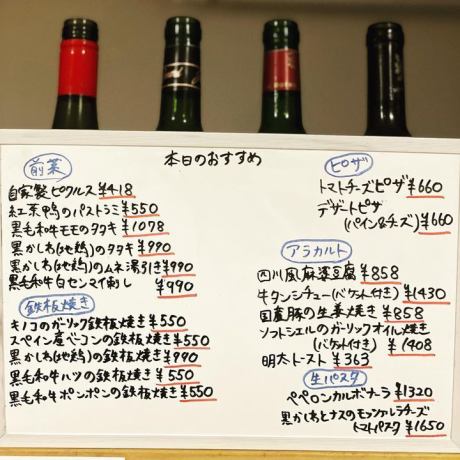 本日のおすすめ
前菜
自家製ピクルス ¥418
紅茶鴨のパストラミ ¥550
黒毛和牛モモのタタキ ¥1078
黒かしわ(地鶏)のタタキ ¥990
黒かしわ(地鶏)のムネ湯引き ¥990
黒毛和牛白センマイ刺し ¥990
鉄板焼き
キノコのガーリック鉄板焼き ¥550
スペイン産ベーコンの鉄板焼き ¥550
黒かしわ(地鶏)の鉄板焼き ¥990
黒毛和牛ハツの鉄板焼き ¥550
黒毛和牛ポンポンの鉄板焼き ¥550
ピザ
トマトチーズピザ ¥660
デザートピザ
(パイン&チーズ) ¥660
アラカルト
四川風麻婆豆腐 ¥858
牛タンシチュー(バケット付き) ¥1430
国産豚の生姜焼き ¥858
ソフトシェルのガーリックオイル焼き
(バケット付き) ¥1408
明太トースト ¥363
生パスタ
ペペロンカルボナーラ ¥1320
黒かしわとナスのモッツァレラチーズ
トマトパスタ ¥1650